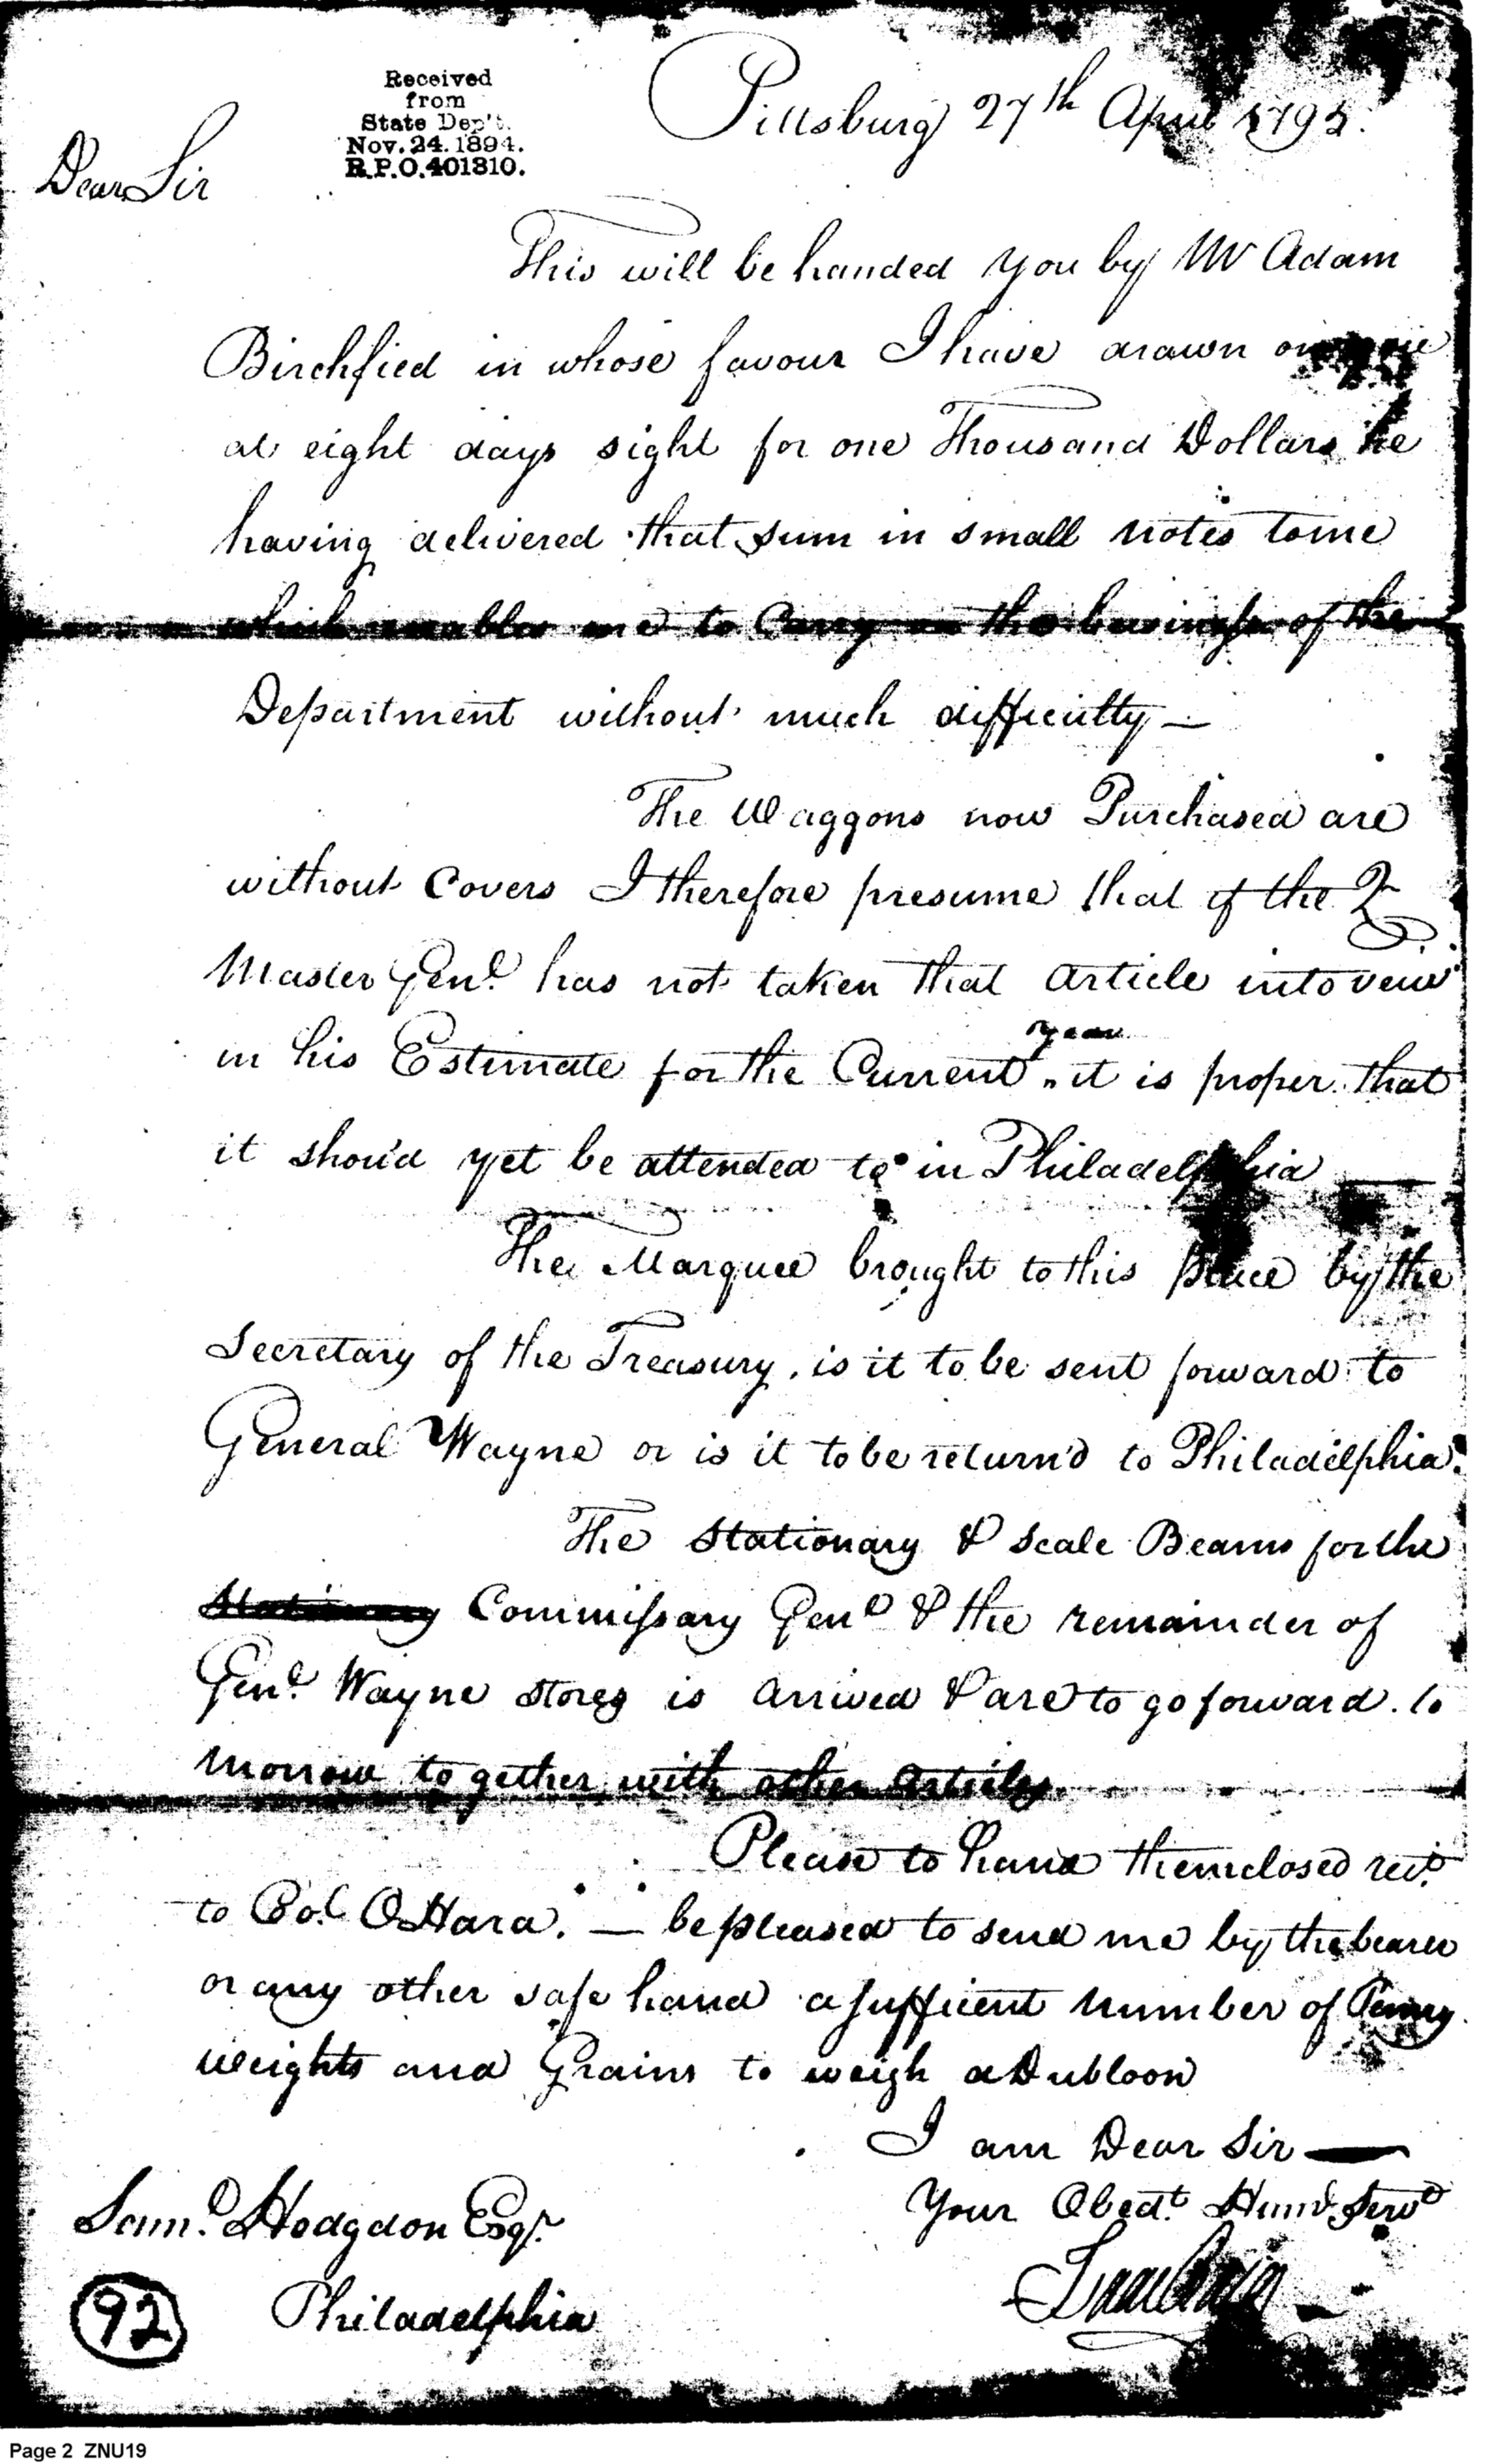 Received
from
State Dep't.
Nov. 24. 1894.
R.P.O. 401810.
Pittsburg 27th April 1795.
Dear Sir
This will be handed you by Mr Adam
Birchfied in whose favour I have drawn on you
at eight days sight for one Thousand Dollars he
having delivered that sum in small notes to me
which enables me to Carry on the business of the
Department without much difficulty —
The Waggons now Purchased are
without Covers I therefore presume that if the Q
Master Genl. has not taken that article into veiw
year
in his Estimate for the Current " it is proper that
it shou'd yet be attended to in Philadelphia —
The Marquee brought to this place by the
Secretary of the Treasury, is it to be sent forward to
General Wayne or is it to be return'd to Philadelphia.
The Stationary & Scale Beams for the
Stationary Commissary Genl & the remainder of
Genl. Wayne stores is arrived & are to go forward to
morrow to gether with other Articles.
Please to hand the inclosed rect.
to Col. OHara. — be pleased to send me by the bearer
or any other safe hand a sufficent number of Penny
weights and Grains to weigh a Dubloon
I am Dear Sir —
Your Obedt. Hum Servt
Isaac Craig
Saml. Hodgdon Esqr.
Philadelphia
92
Page 2 ZNU19